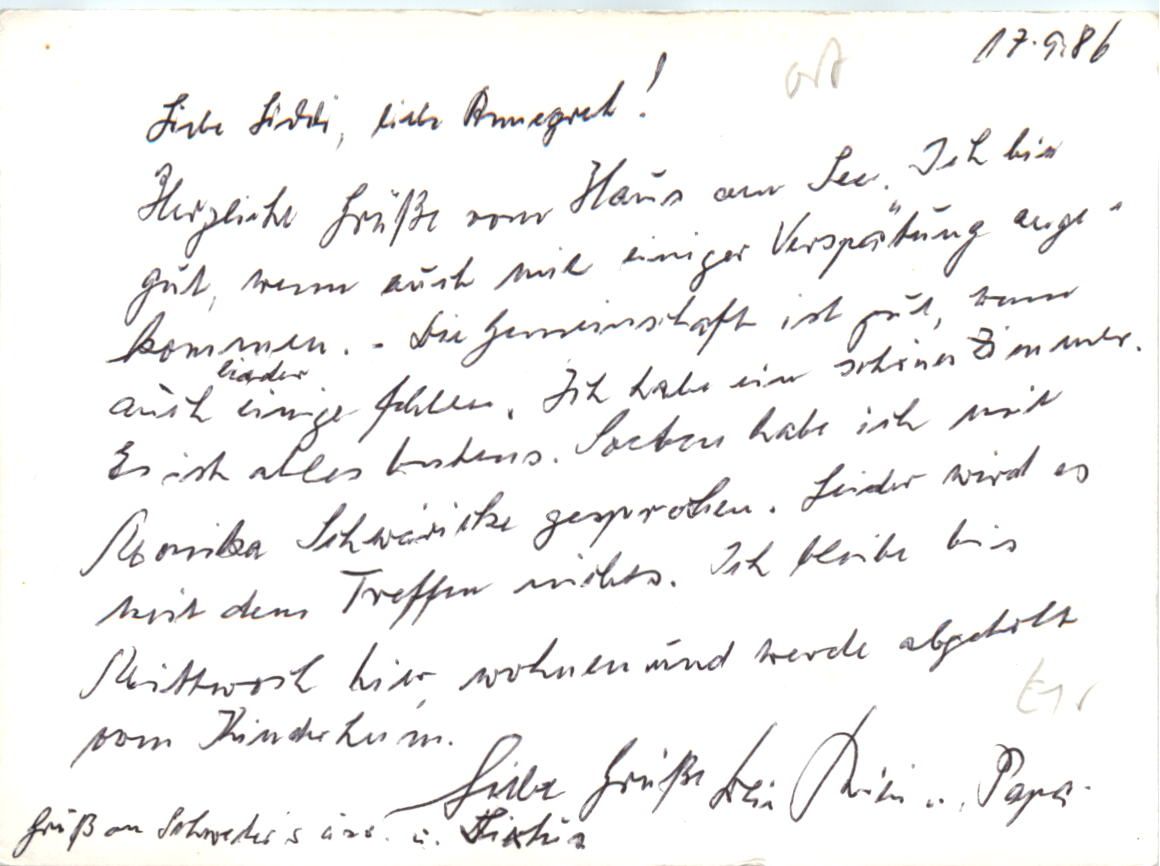 17.9.86
Liebe Siddi, liebe Annegret!
Herzliche Grüße vom Haus am See. Ich bin
gut, wenn auch mit einiger Verspätung ange-
kommen. - Die Gemeinschaft ist gut, wenn
auch leider einige fehlen. Ich habe ein schönes Zimmer.
Es ist alles bestens. Soeben habe ich mit
Monika gesprochen. Leider wird es
mit dem Treffen nichts. Ich bleibe bis
Mittwoch hier wohnen und werde abgeholt
vom Kinderheim.
Liebe Grüße Dein u. Papa.
Gruß an u.